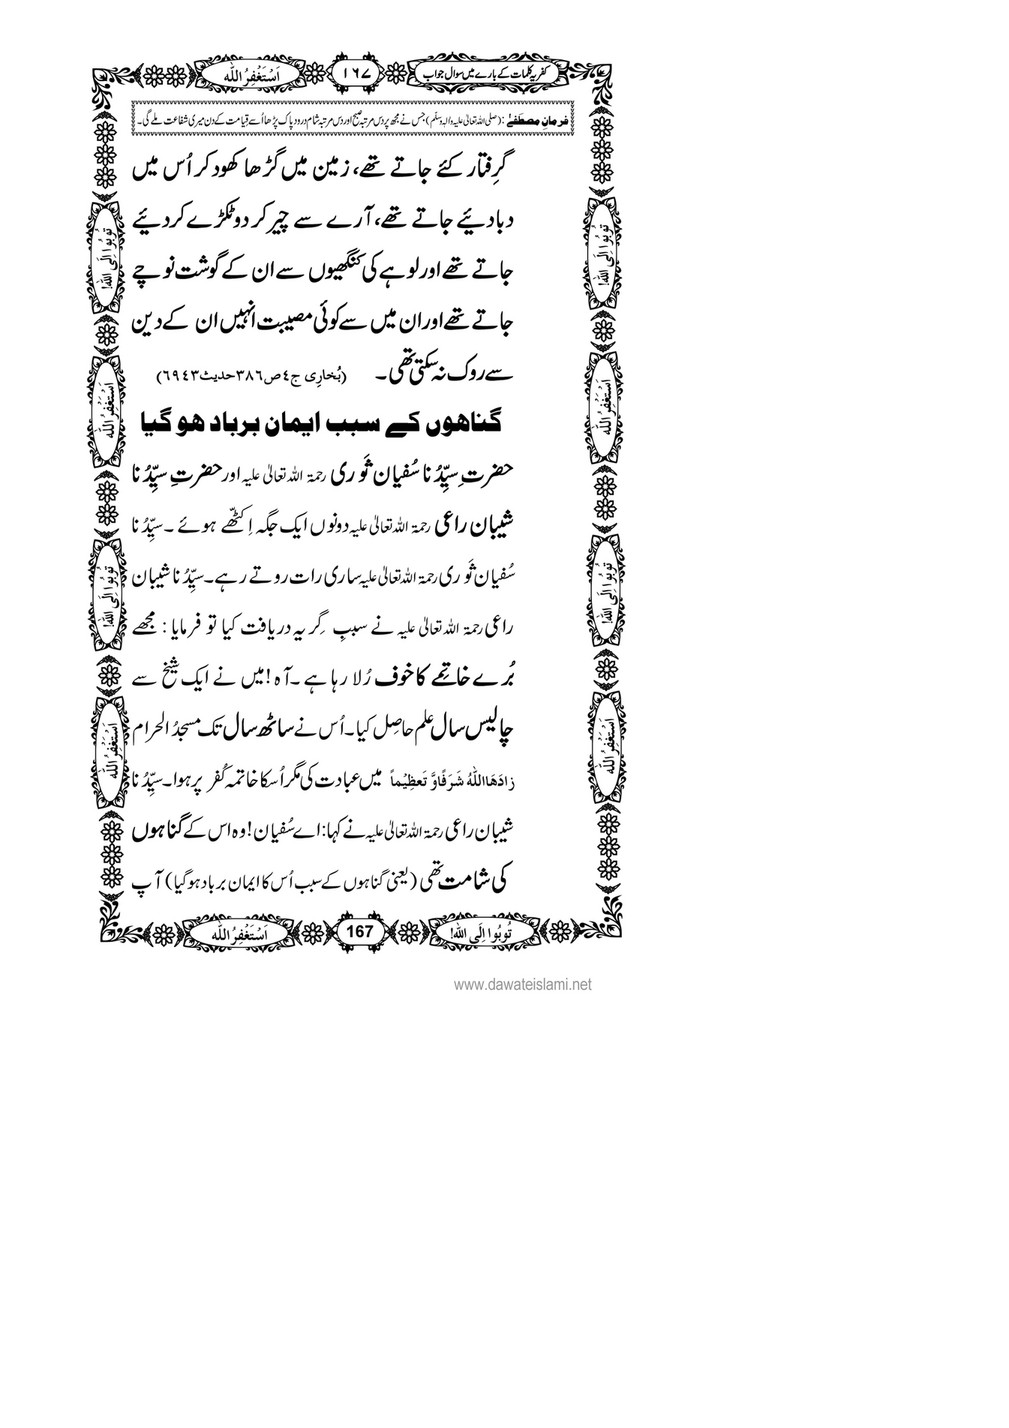 کفریہ کلمات کے بارے میں سوال جواب ١٦٧ اَسْتَغْفِرُ اللّٰه
فرمانِ مصطفےٰ : (صلی اللہ تعالیٰ علیہ والہ وسلّم) جس نے مجھ پر دس مرتبہ صبح اور دس مرتبہ شام درود پاک پڑھا اُسے قیامت کے دن میری شفاعت ملے گی۔
گرِفتار کئے جاتے تھے، زمین میں گڑھا کھود کر اُس میں
دبا دئیے جاتے تھے، آرے سے چیر کر دو ٹکڑے کر دئیے
جاتے تھے اور لوہے کی کنگھیوں سے ان کے گوشت نوچے
جاتے تھے اور ان میں سے کوئی مصیبت انہیں ان کے دین
سے روک نہ سکتی تھی۔ (بُخارِی ج٤ ص٣٨٦ حدیث٦٩٤٣)
گناھوں کے سبب ایمان برباد ھو گیا
حضرتِ سیِّدُنا سُفیان ثَوری رحمۃ اللہ تعالیٰ علیہ اور حضرتِ سیِّدُنا
شیبان راعی رحمۃ اللہ تعالیٰ علیہ دونوں ایک جگہ اِکٹّھے ہوئے ۔ سیِّدُنا
سُفیان ثَوری رحمۃ اللہ تعالیٰ علیہ ساری رات روتے رہے۔ سیِّدُنا شیبان
راعی رحمۃ اللہ تعالیٰ علیہ نے سببِ گِریہ دریافت کیا تو فرمایا : مجھے
بُرے خاتِمے کا خوف رُلا رہا ہے ۔ آہ ! میں نے ایک شیخ سے
چالیس سال علم حاصِل کیا۔ اُس نے ساٹھ سال تک مسجدُ الحرام
زَادَهَا اللّٰهُ شَرَفًا وَّ تَعظِيْماً میں عبادت کی مگر اُسکا خاتمہ کُفر پر ہوا۔ سیِّدُنا
شیبان راعی رحمۃ اللہ تعالیٰ علیہ نے کہا: اے سُفیان! وہ اس کے گناہوں
کی شامت تھی (یعنی گناہوں کے سبب اُس کا ایمان برباد ہو گیا) آپ
تُوبُوا اِلَى اللّٰه! 167 اَسْتَغْفِرُ اللّٰه
تُوبُوا اِلَى اللّٰه!
اَسْتَغْفِرُ اللّٰه
تُوبُوا اِلَى اللّٰه!
اَسْتَغْفِرُ اللّٰه
تُوبُوا اِلَى اللّٰه!
اَسْتَغْفِرُ اللّٰه
تُوبُوا اِلَى اللّٰه!
اَسْتَغْفِرُ اللّٰه
www.dawateislami.net